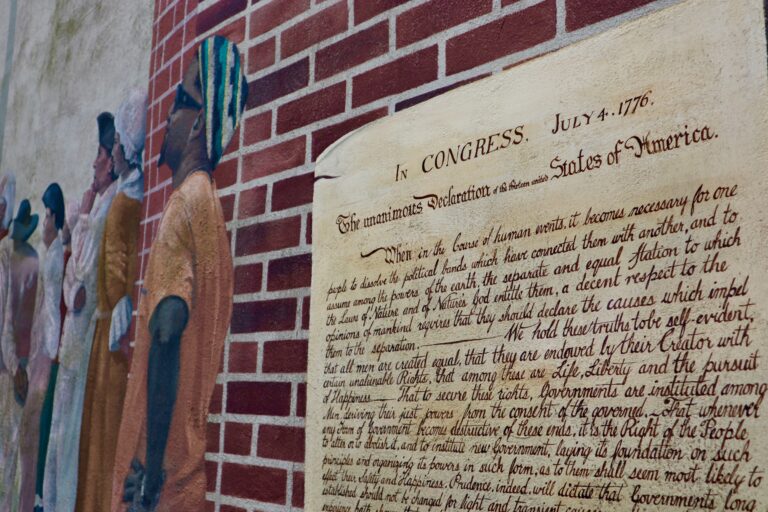 In CONGRESS. July 4, 1776.
The unanimous Declaration of the thirteen united States of America.
When in the Course of human events, it becomes necessary for one
people to dissolve the political bands which have connected them with another, and to
assume among the powers of the earth, the separate and equal Station to which
the Laws of Nature and of Nature's God entitle them, a decent respect to the
opinions of mankind requires that they should declare the causes which impel
them to the separation. We hold these truths to be self-evident,
that all men are created equal, that they are endowed by their Creator with
certain unalienable Rights, that among these are Life, Liberty and the pursuit
of Happiness — That to secure these rights, Governments are instituted among
Men deriving their just powers from the consent of the governed, — That whenever
any Form of Government becomes destructive of these ends, it is the Right of the People
to alter or to abolish it, and to institute new Government, laying its foundation on such
principles and organizing its powers in such form, as to them shall seem most likely to
effect their Safety and Happiness. Prudence, indeed, will dictate that Governments long
established should not be changed for light and transient causes